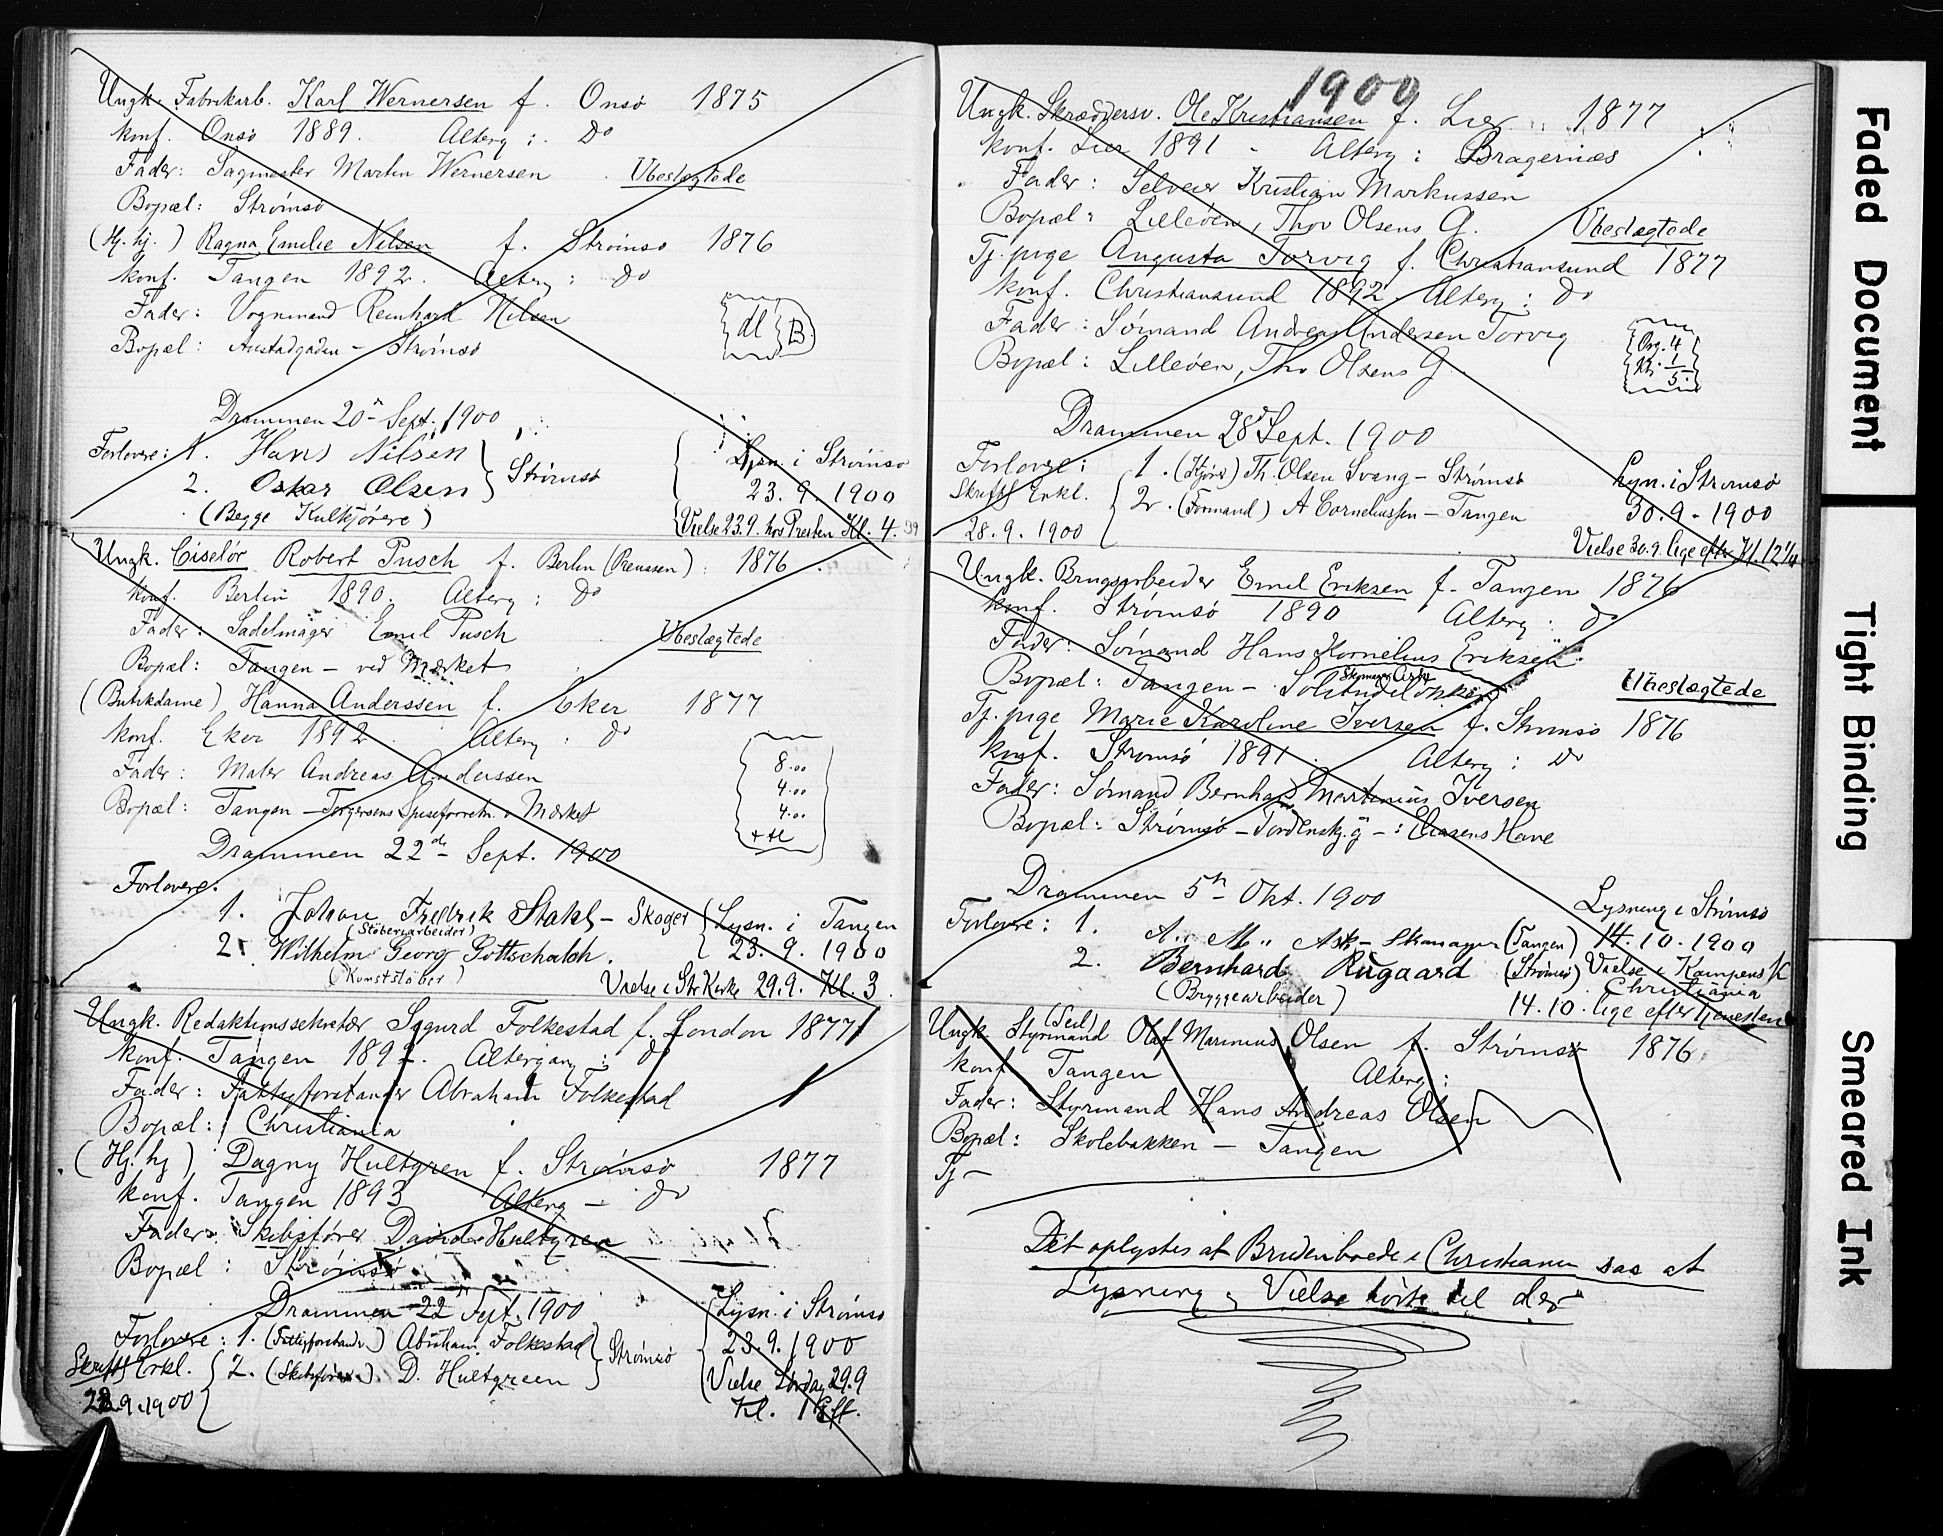 Ungk. Fabrikarb. Karl Wernersen f. Onsø 1875
konf. Onsø 1889. Alterg: do
Fader: Sagmester Martin Wernersen Ubeslægtede
Bopæl: Strømsø
(Hj. hj.) Ragna Emilie Nilsen f. Strømsø 1876
konf. Tangen 1892. Alterg: do
Fader: Vognmand Reinhard Nilsen
dl B
Bopæl: Austadgaden - Strømsø
Drammen 20 Sept. 1900
Forlovere: 1. Hans Nilsen
2. Oskar Olsen
Strømsø
(Begge Kulkjørere)
Lysn. i Strømsø
23.9.1900
Vielse 23.9. hos Presten Kl. 4.
Ungk. Ciselør Robert Pusch f. Berlin (Preussen) 1876
konf. Berlin 1890. Alterg: do
Fader: Sadelmager Emil Pusch Ubeslægtede
Bopæl: Tangen - ved Mærket
(Butikdame) Hanna Anderssen f. Eker 1877
konf. Eker 1892 Alterg. do
Fader: Maler Andreas Anderssen
Bopæl: Tangen - Torgersens Spiseforretn. v Mærket
8.00
4.00
4.00
Drammen 22de Sept. 1900
Forlovere:
1. Johan Fredrik Stahl - Skoger
(Støberiarbeider)
2. Wilhelm Georg Gottschalch.
(Kunststøber)
Lysn. i Tangen
23.9.1900
Vielse i Str Kirke 29.9. Kl. 3
Ungk. Redaktionssekretær Sigurd Folkestad f. London 1877
konf. Tangen 189 Altergang: do
Fader: Fattigforstander Abraham Folkestad
Bopæl: Christiania
(Hj. hj) Dagny Hultgren f. Strømsø 1877
konf. Tangen 1893 Alterg - do
Fader: Skibsfører David Hultgren
Bopæl: Strømsø
Drammen 22 Sept. 1900
Forlovere: 1. (Fattigforstander) Abraham Folkestad
2. (Skibsfører) D. Hultgreen
Strømsø
Skriftl Erkl.
9.1900
Lysn. i Strømsø
23.9.1900
Vielse Lørdag 29.9
Kl. 1 Eft.
1900
Ungk. Skræddersv. Ole Kristiansen f. Lier 1877
konf. Lier 1891 - Alterg: Bragernæs
Fader: Selveier Kristian Markussen
Bopæl: Lilleøen, Thor Olsens G. Ubeslægtede
Tj. pige Augusta Torvig f. Christiansund 1877
konf. Christiansund 1892. Alterg: do
Fader: Sømand Andreas Andersen Torvig
Bopæl: Lilleøen, Thor Olsens G.
Org. 4
1
5.
Drammen 28 Sept. 1900
Forlovere: 1. (Kjører) Th. Olsen Svang - Strømsø
2. (Formand) A Corneliussen - Tangen
Skriftl Erkl.
28.9.1900
Lyn. i Strømsø
30.9.1900
Vielse 30.9. lige efter Kl. 12 1/4
Ungk. Brugsarbeider Emil Eriksen f. Tangen 1876
konf. Strømsø 1890 Alterg: do
Fader: Sømand Hans Kornelius Eriksen
Bopæl: Tangen - Solitudeløkken
Ubeslægtede
Tj. pige Marie Karoline Iversen f. Strømsø 1876
konf. Strømsø 1891. Alterg: do
Fader: Sømand Bernhard Martinius Iversen
Bopæl: Strømsø - Tordenskj. g - Eliasens Have
Drammen 5 Okt. 1900
Forlovere: 1. A. M. Ask - Skomager (Tangen)
2. Bernhard Rugaard (Strømsø)
(Bryggearbeider)
Lysning i Strømsø
14.10.1900
Vielse i Kampens K
Christiania
14.10. lige efter tjenesten
(Seil)
Ungk. Styrmand Olaf Marinius Olsen f. Strømsø 1876
konf Tangen Alterg:
Fader: Styrmand Hans Andreas Olsen
Bopæl: Skolebakken - Tangen
Tj -
Det oplystes at Bruden boede i Christiania saa at
Lysning og Vielse hørte til der
Faded Document
Tight Binding
Smeared Ink